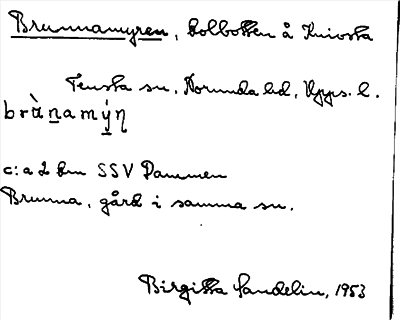 Brunnamyren, kolbotten å Knivsta
Tensta sn, Norunda hd, Upps. l.
brànamýn
c:a 2 km SSV Dammen
Brunna, gård i samma sn.
Birgitta Sandelin, 1953